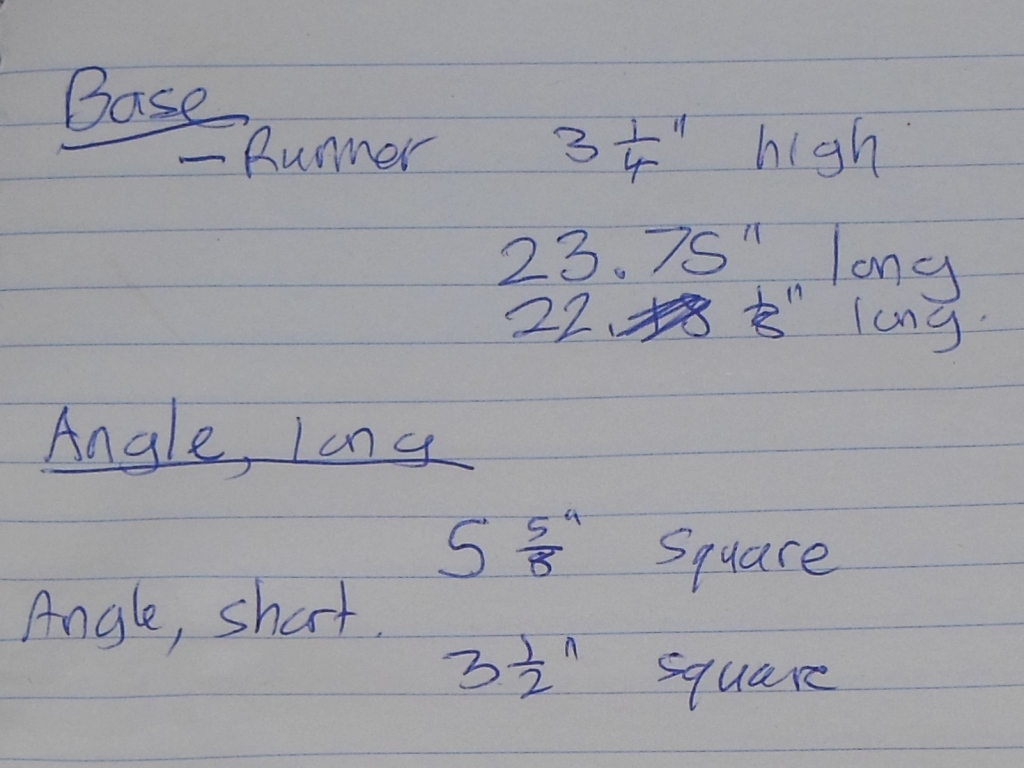 Base
- Runner 3 1/4" high
23.75" long
22. 1/8" long.
Angle, long
5 5/8" square
Angle, short.
3 1/2" square